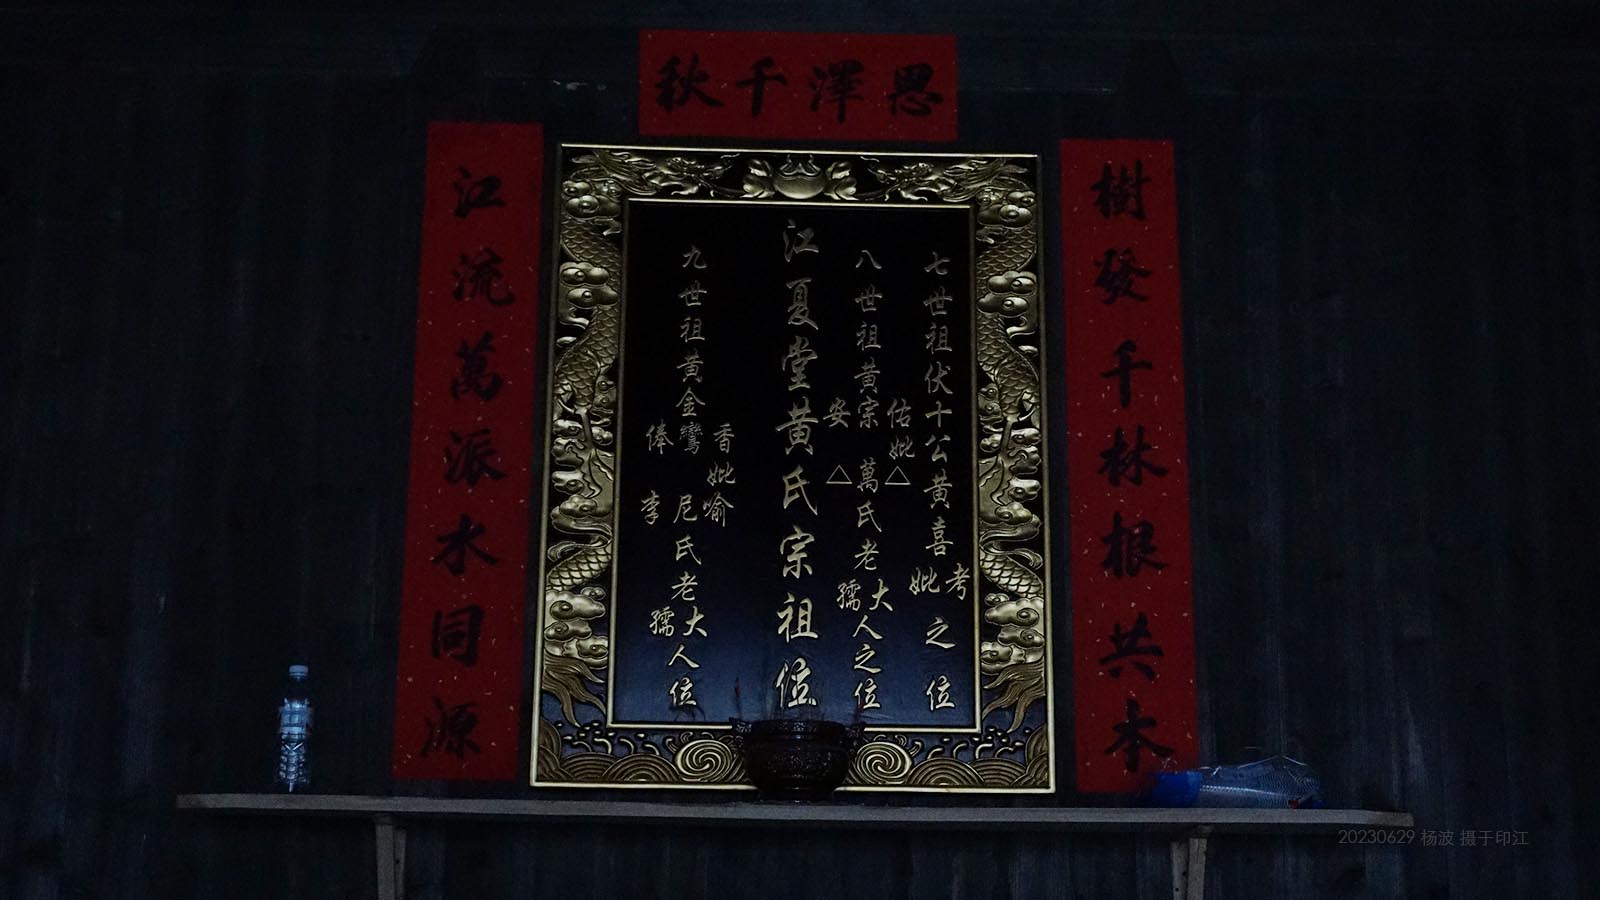 恩澤千秋
樹發千林根共本
七世祖伏十公黄喜考妣之位
八世祖黄宗佑安妣△萬△氏老大孺人之位
江夏堂黄氏宗祖位
九世祖黄金鸞香俸妣尼喻李氏老大孺人位
江流萬派水同源
20230629 杨波 摄于印江